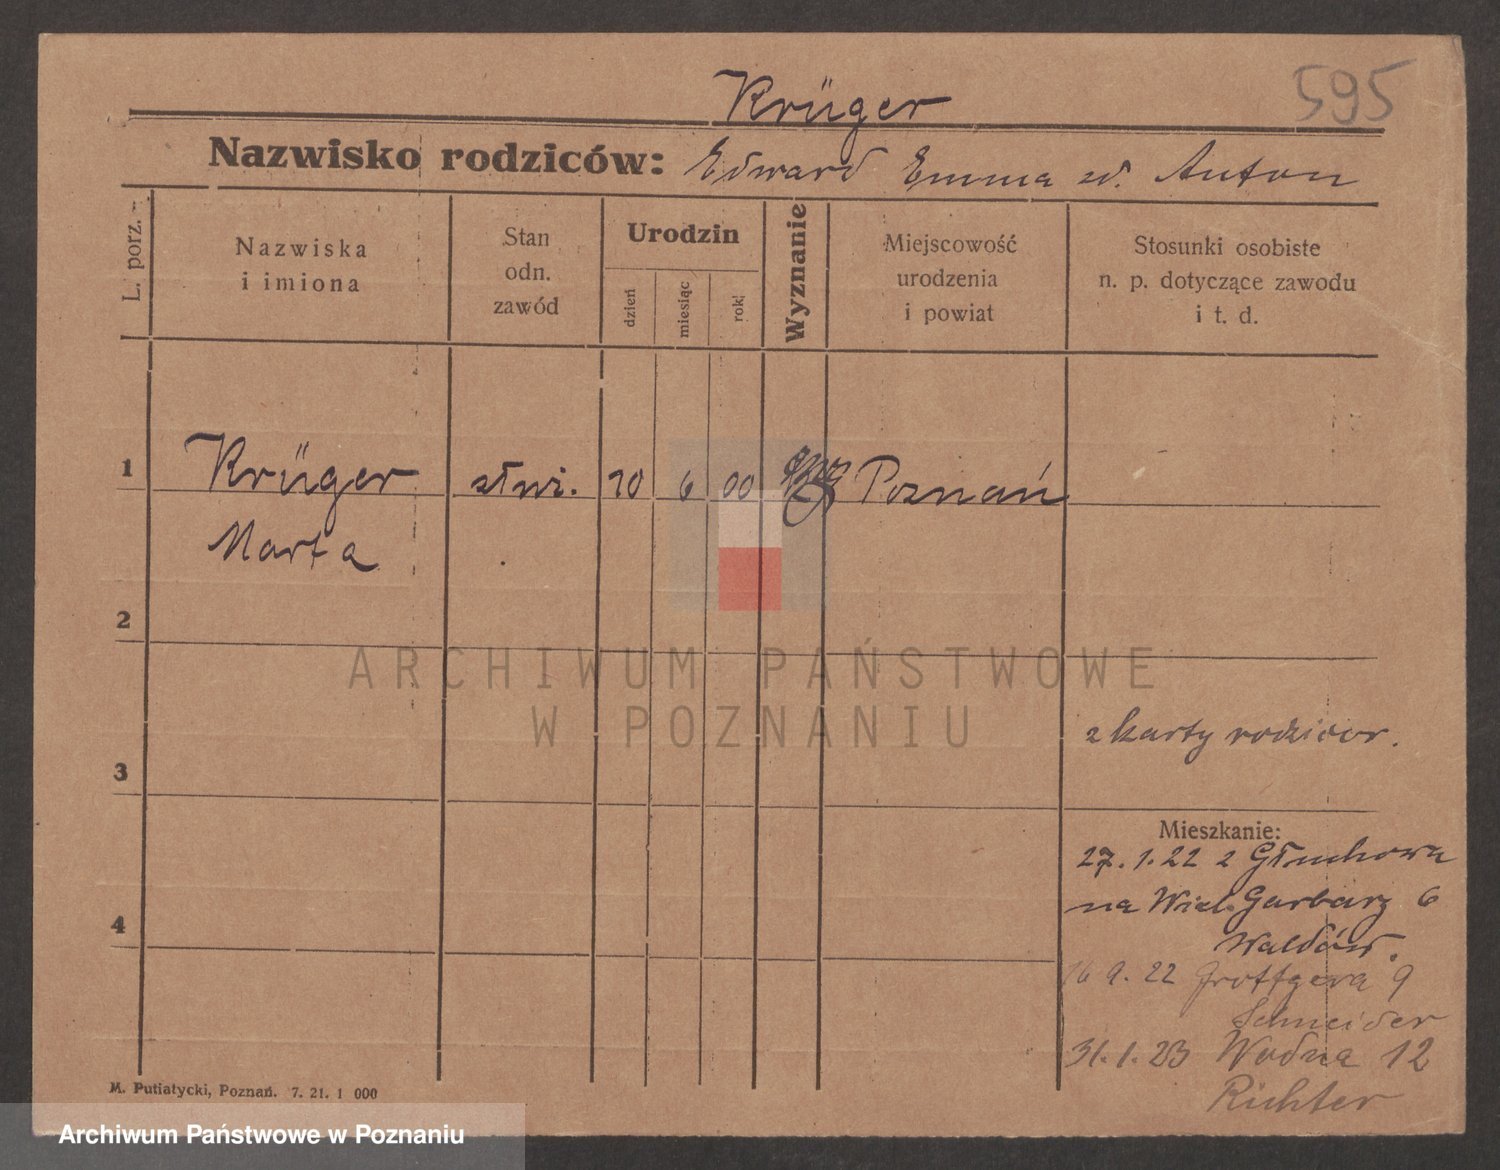 595
Krüger
Nazwisko rodziców: Edward Emma zd. Anton
L. porz.
Nazwiska
i imiona
Stan
odn.
zawód
Urodzin
dzień
miesiąc
rok
Wyznanie
Miejscowość
urodzenia
i powiat
Stosunki osobiste
n. p. dotyczące zawodu
i t. d.
1 Krüger 10 6 00 Poznań
Marta
2
ARCHIWUM PAŃSTWOWE
W POZNANIU
z karty rodzicor.
3
Mieszkanie:
27. 1. 22 z Głuchowa
na Wiel. Garbary 6
4
16 9. 22 Grottgera 9
Schneider
31. 1. 23 Wodna 12
Richter
M. Putiatycki, Poznań. 7. 21. 1 000
Archiwum Państwowe w Poznaniu